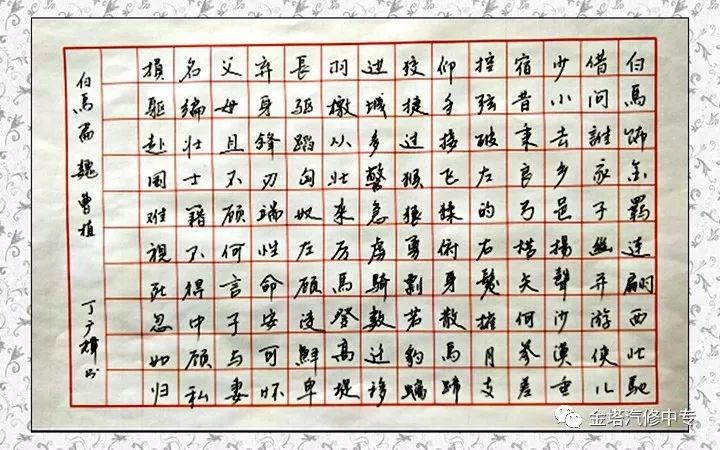 白馬飾金羈連翩西北馳
借問誰家子幽并游侠儿
少小去乡邑揚聲沙漠垂
宿昔秉良弓楛矢何参差
控弦破左的右髮摧月支
仰手接飞猱俯身散馬蹄
狡捷过猴猿勇剽若豹螭
边城多警急虜騎数迁移
羽檄从北来厉馬登高堤
長驱蹈匈奴左顾凌鮮卑
弃身鋒刃端性命安可怀
父母且不顾何言子与妻
名编壮士籍不得中顾私
捐驱赴国难視死忽如归
白馬篇 魏 曹植
丁广 书
金塔汽修中专